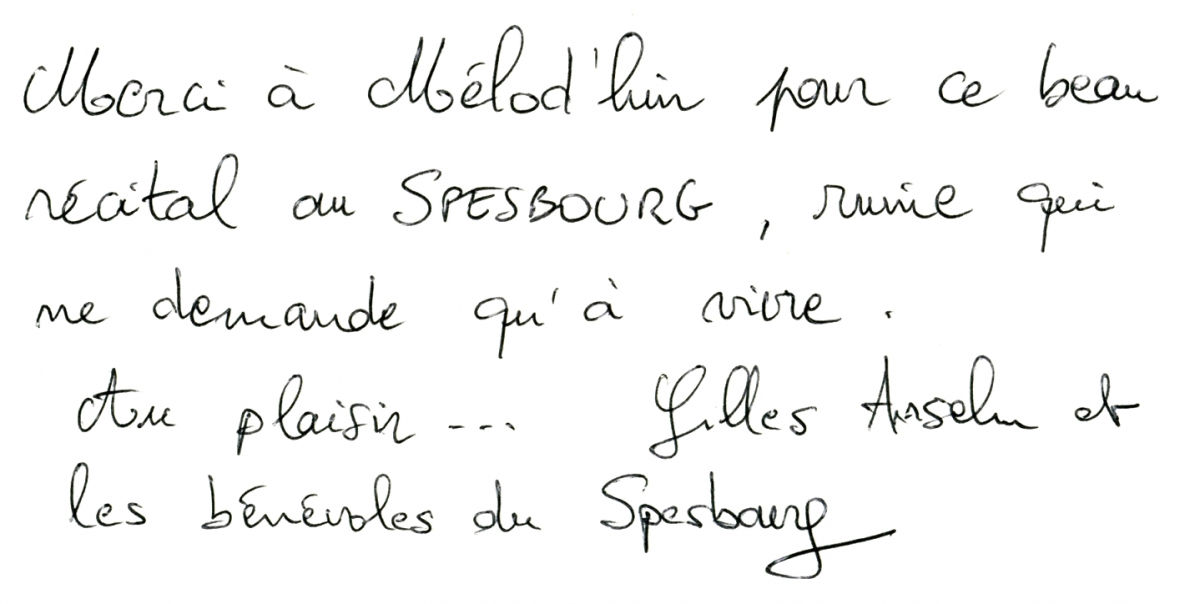 Merci à Mélod'hin pour ce beau
récital au SPESBOURG, ruine qui
ne demande qu'à vivre.
Au plaisir... Gilles Anselm et
les bénévoles du Spesbourg